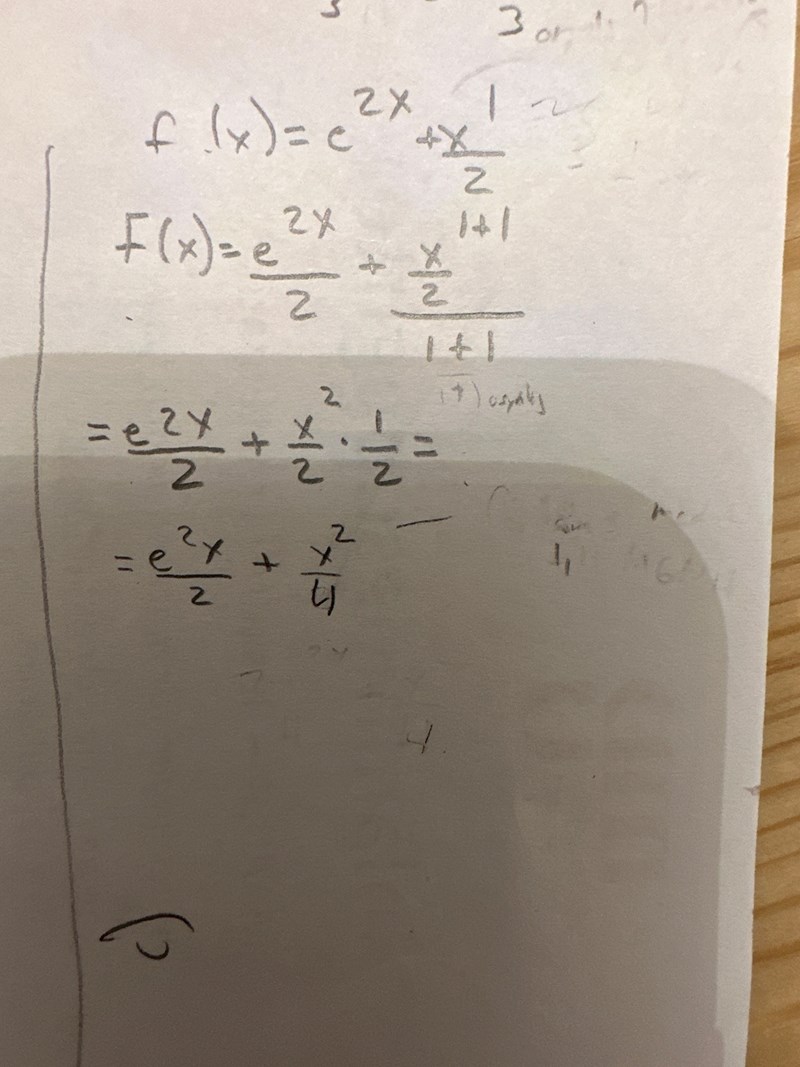 3
f(x) = e^{2x} + x^1/2
F(x) = e^{2x}/2 + (x/2)^{1+1}/(1+1)
= e^{2x}/2 + x^2/2 · 1/2 =
= e^{2x}/2 + x^2/4